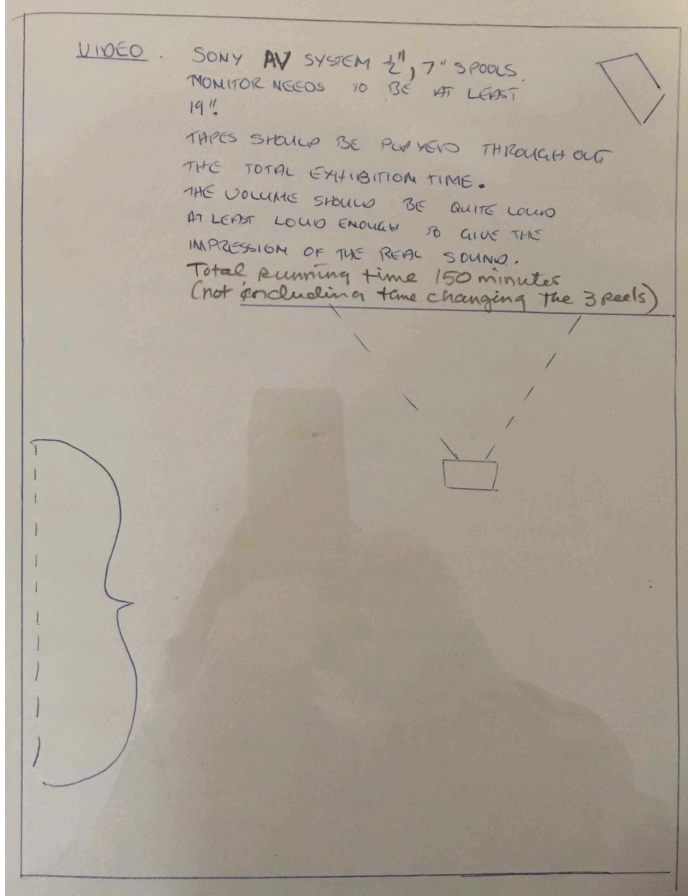 VIDEO. SONY AV SYSTEM ½", 7" SPOOLS.
MONITOR NEEDS TO BE AT LEAST
19".
TAPES SHOULD BE PLAYED THROUGH OUT
THE TOTAL EXHIBITION TIME.
THE VOLUME SHOULD BE QUITE LOUD
AT LEAST LOUD ENOUGH TO GIVE THE
IMPRESSION OF THE REAL SOUND.
Total running time 150 minutes
(not including time changing the 3 reels)